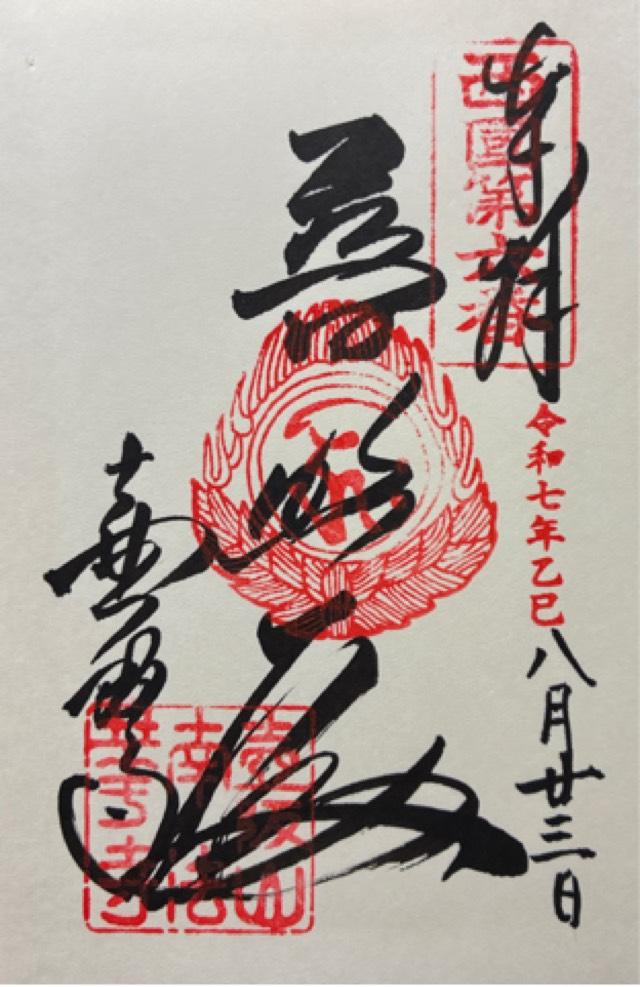 奉拝
西國第六番
令和七年乙巳八月廿三日
普照殿
壺阪山
南法
華寺